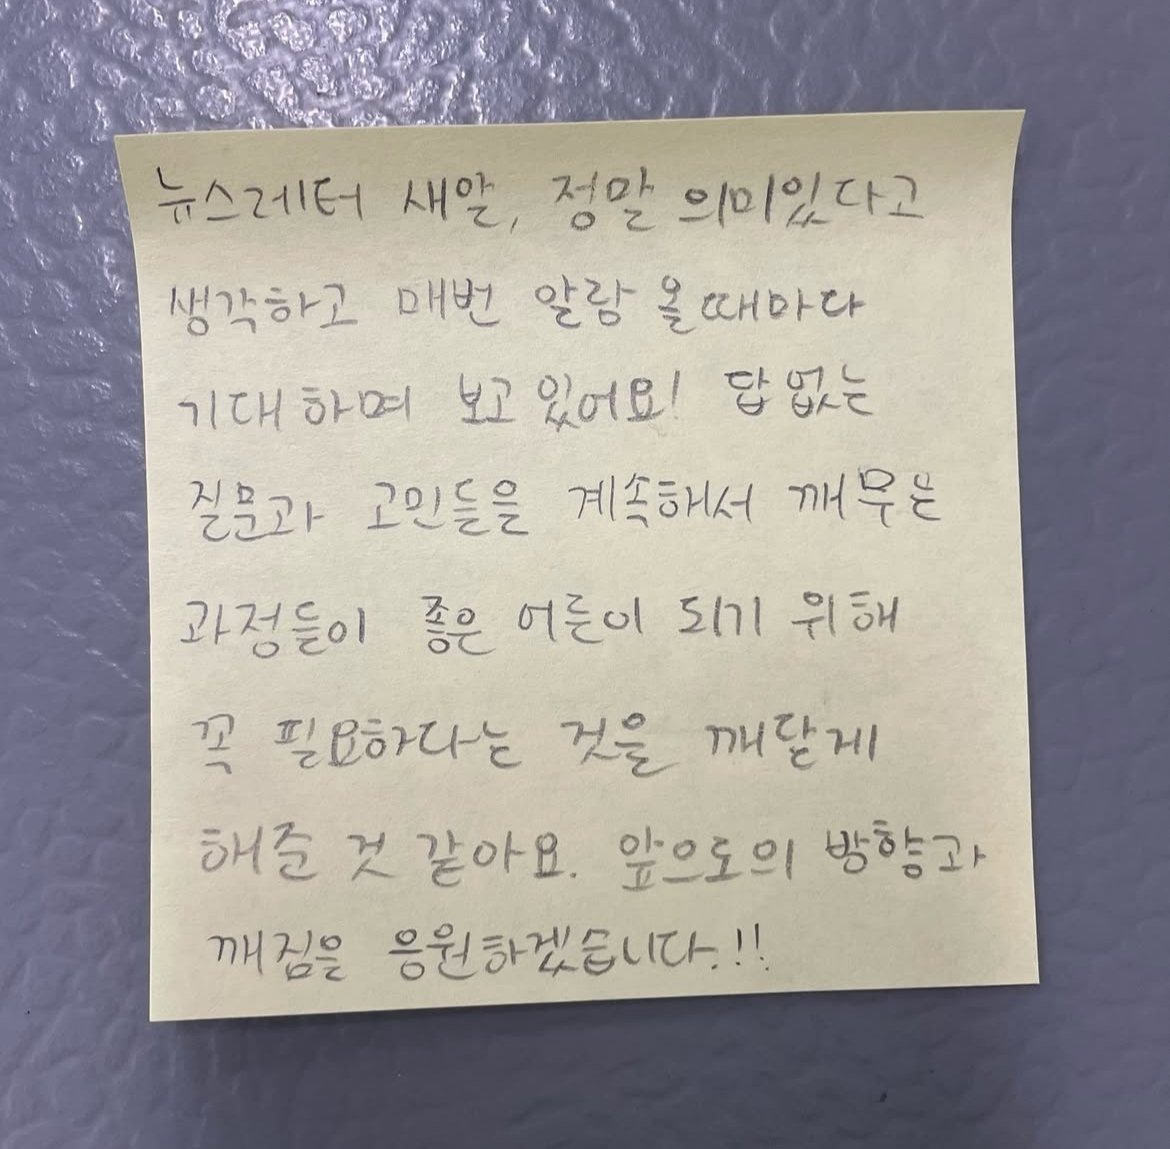 뉴스레터 새알, 정말 의미있다고
생각하고 매번 알람 올때마다
기대하며 보고 있어요! 답 없는
질문과 고민들을 계속해서 깨무는
과정들이 좋은 어른이 되기 위해
꼭 필요하다는 것을 깨닫게
해준 것 같아요. 앞으로의 방향과
깨짐을 응원하겠습니다.!!